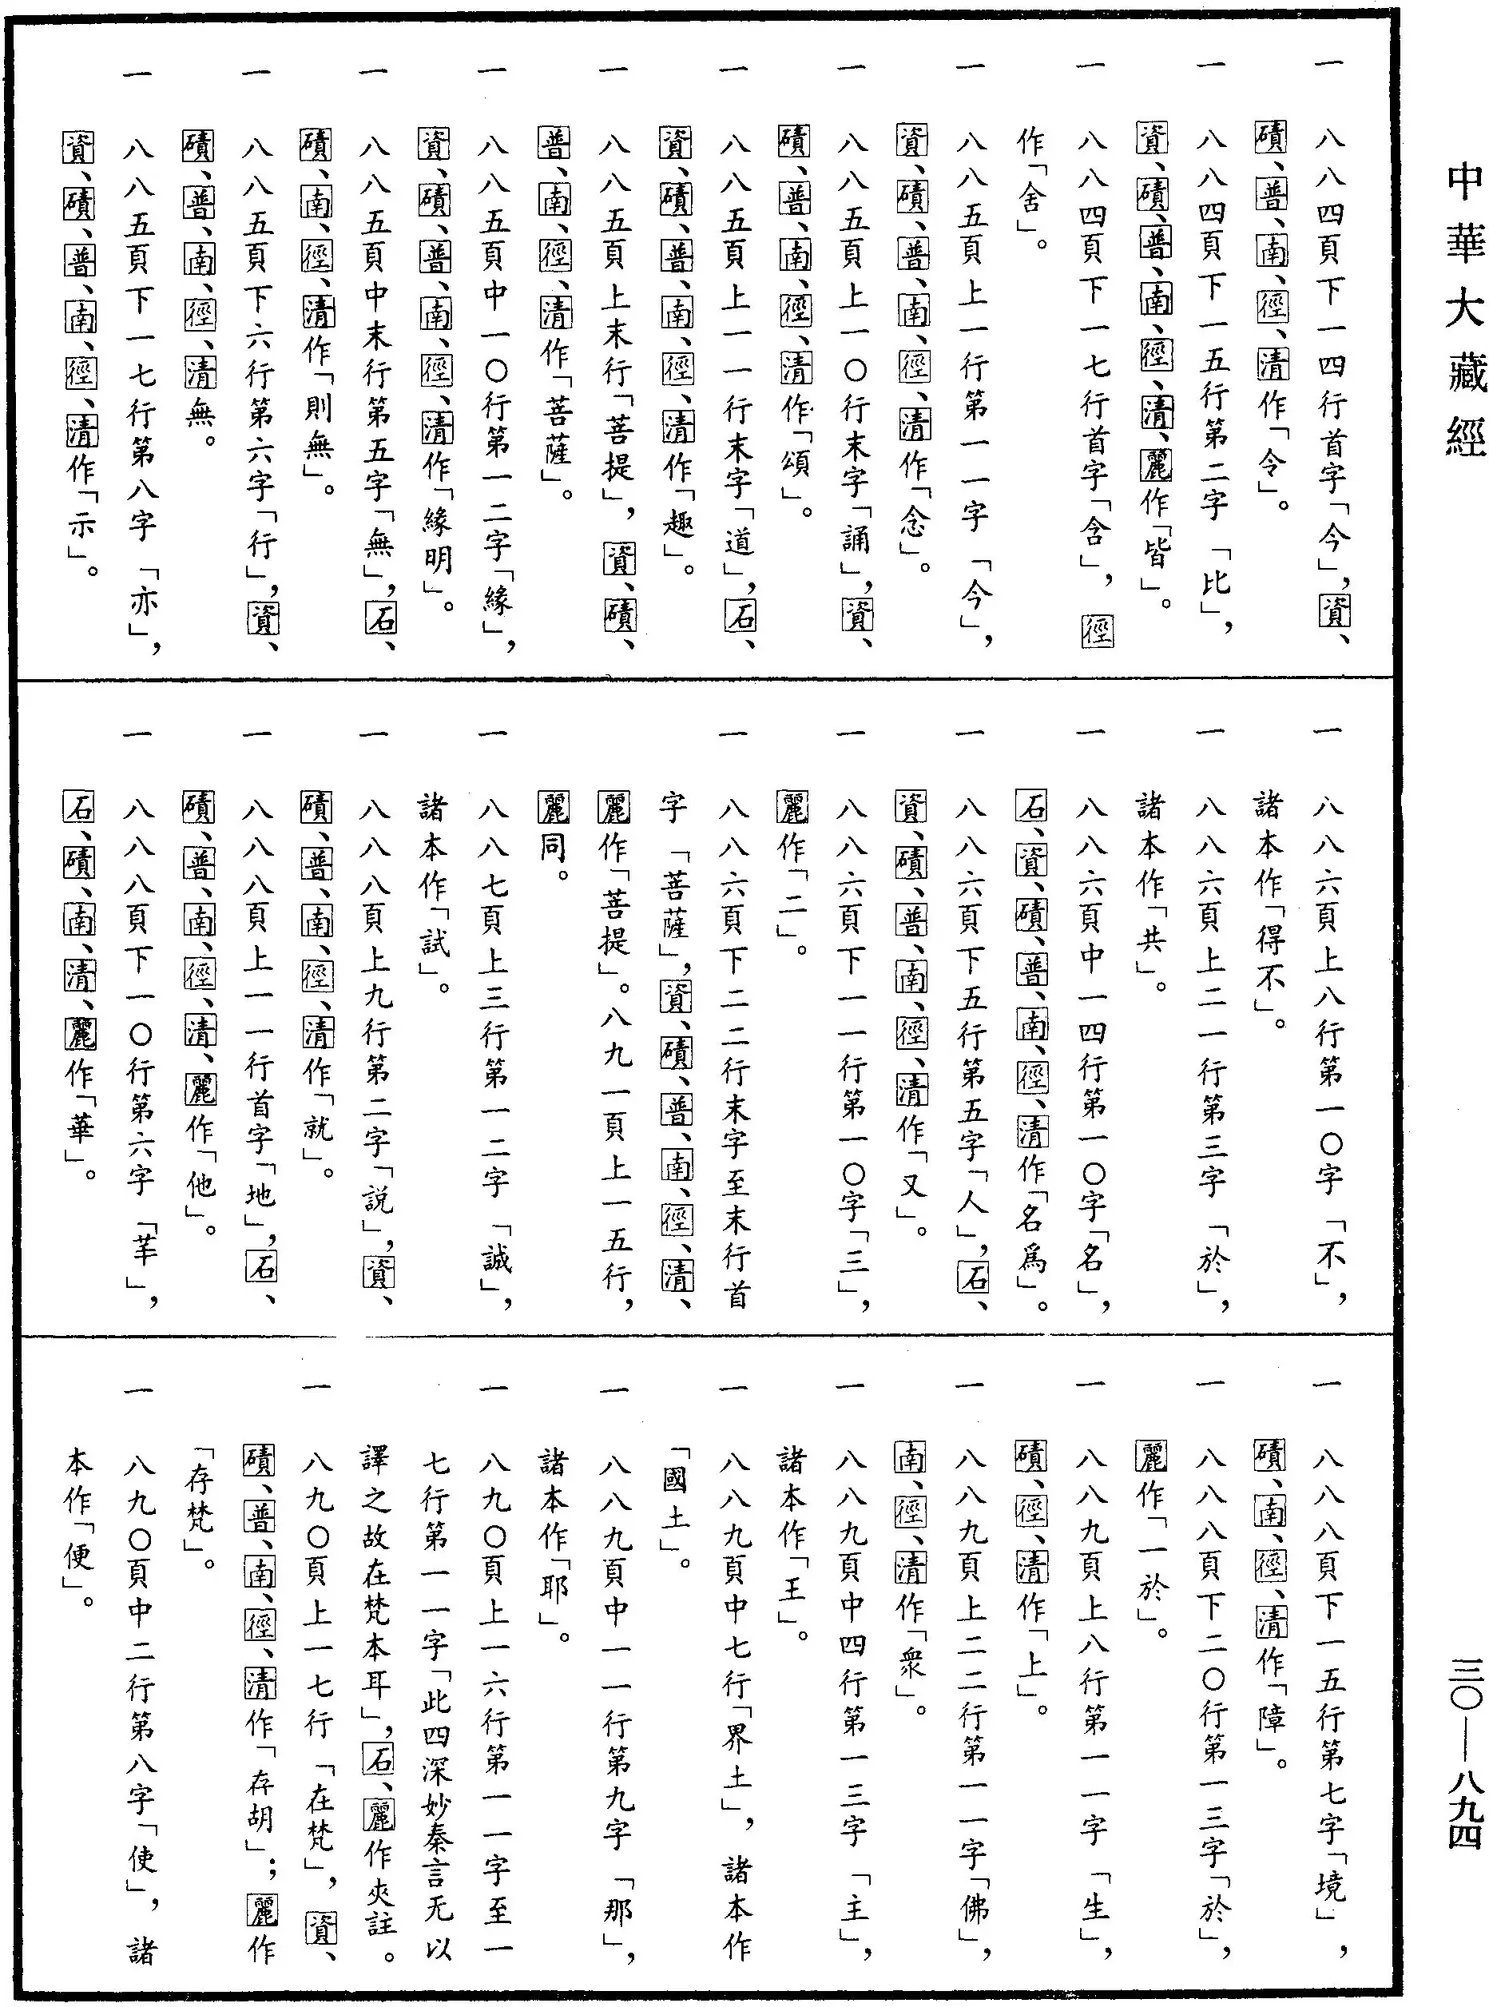 中華大藏經
一　八八四頁下一四行首字「今」，資、
磧、普、南、徑、清作「令」。
一　八八四頁下一五行第二字「比」，
資、磧、普、南、徑、清、麗作「皆」。
一　八八四頁下一七行首字「含」，徑
作「舍」。
一　八八五頁上一行第一一字「今」，
資、磧、普、南、徑、清作「念」。
一　八八五頁上一〇行末字「誦」，資、
磧、普、南、徑、清作「頌」。
一　八八五頁上一一行末字「道」，石、
資、磧、普、南、徑、清作「趣」。
一　八八五頁上末行「菩提」，資、磧、
普、南、徑、清作「菩薩」。
一　八八五頁中一〇行第一二字「緣」，
資、磧、普、南、徑、清作「緣明」。
一　八八五頁中末行第五字「無」，石、
磧、南、徑、清作「則無」。
一　八八五頁下六行第六字「行」，資、
磧、普、南、徑、清無。
一　八八五頁下一七行第八字「亦」，
資、磧、普、南、徑、清作「示」。
一　八八六頁上八行第一〇字「不」，
諸本作「得不」。
一　八八六頁上二一行第三字「於」，
諸本作「共」。
一　八八六頁中一四行第一〇字「名」，
石、資、磧、普、南、徑、清作「名爲」。
一　八八六頁下五行第五字「人」，石、
資、磧、普、南、徑、清作「又」。
一　八八六頁下一一行第一〇字「三」，
麗作「二」。
一　八八六頁下二二行末字至末行首
字「菩薩」，資、磧、普、南、徑、清、
麗作「菩提」。八九一頁上一五行，
麗同。
一　八八七頁上三行第一二字「誠」，
諸本作「試」。
一　八八八頁上九行第二字「説」，資、
磧、普、南、徑、清作「就」。
一　八八八頁上一一行首字「地」，石、
磧、普、南、徑、清、麗作「他」。
一　八八八頁下一〇行第六字「芉」，
石、磧、南、清、麗作「華」。
一　八八八頁下一五行第七字「境」，
磧、南、徑、清作「障」。
一　八八八頁下二〇行第一三字「於」，
麗作「一於」。
一　八八九頁上八行第一一字「生」，
磧、徑、清作「上」。
一　八八九頁上二二行第一一字「佛」，
南、徑、清作「衆」。
一　八八九頁中四行第一三字「主」，
諸本作「王」。
一　八八九頁中七行「界土」，諸本作
「國土」。
一　八八九頁中一一行第九字「那」，
諸本作「耶」。
一　八九〇頁上一六行第一一字至一
七行第一一字「此四深妙秦言无以
譯之故在梵本耳」，石、麗作夾註。
一　八九〇頁上一七行「在梵」，資、
磧、普、南、徑、清作「存胡」；麗作
「存梵」。
一　八九〇頁中二行第八字「使」，諸
本作「便」。
三〇—八九四